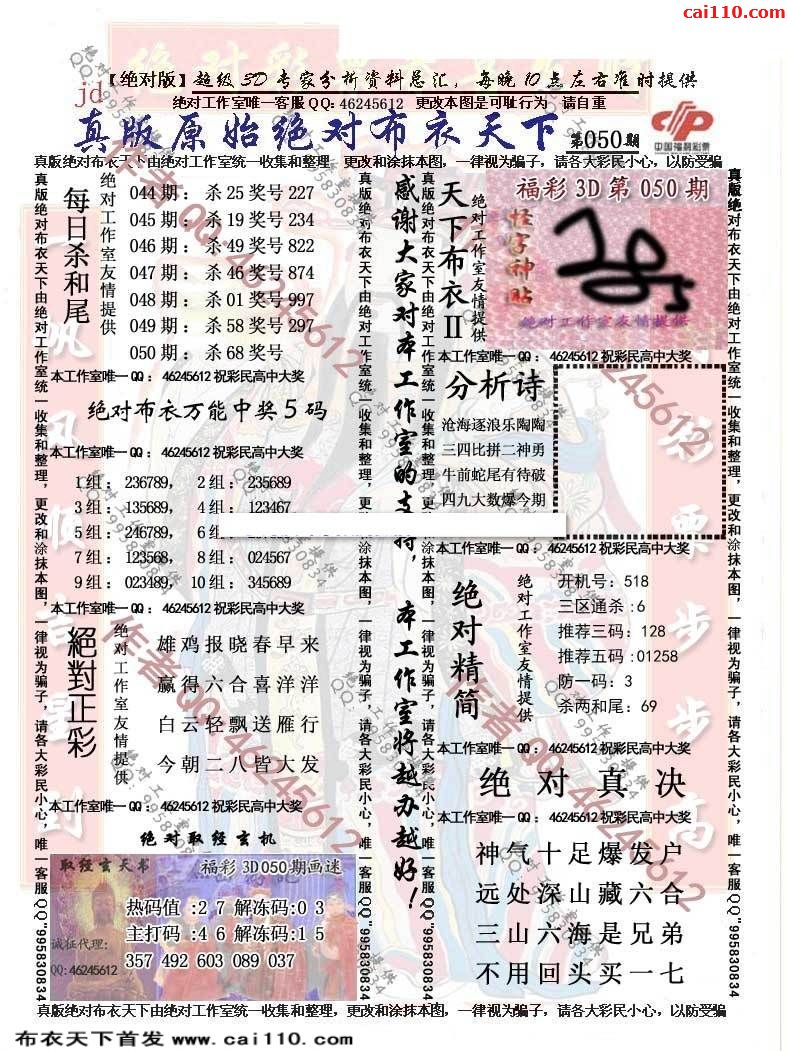 cai110.com
【绝对版】超级3D专家分析资料总汇，每晚10点左右准时提供
jd
绝对工作室唯一客服QQ: 46245612 更改本图是可耻行为 请自重
真版原始绝对布衣天下 第050期
中国福利彩票
真版绝对布衣天下由绝对工作室统一收集和整理，更改和涂抹本图，一律视为骗子，请各大彩民小心，以防受骗
真版绝对布衣天下由绝对工作室统一收集和整理，更改和涂抹本图，一律视为骗子，请各大彩民小心，唯一客服QQ"995830834
每日杀和尾
绝对工作室友情提供
044期：杀25奖号227
045期：杀19奖号234
046期：杀49奖号822
047期：杀46奖号874
048期：杀01奖号997
049期：杀58奖号297
050期：杀68奖号
本工作室唯一QQ：46245612祝彩民高中大奖
绝对布衣万能中奖5码
本工作室唯一QQ：46245612祝彩民高中大奖
1组：236789， 2组：235689
3组：135689， 4组：123467
5组：246789， 6组
7组：123568， 8组：024567
9组：023489， 10组：345689
本工作室唯一QQ：46245612祝彩民高中大奖
絕對正彩
绝对工作室友情提供
雄鸡报晓春早来
赢得六合喜洋洋
白云轻飘送雁行
今朝二八皆大发
本工作室唯一QQ：46245612祝彩民高中大奖
绝对取经玄机
取经玄天书
福彩3D050期画迷
热码值:27解冻码:03
主打码:46解冻码:15
357 492 603 089 037
诚征代理:
QQ:46245612
真版绝对布衣天下由绝对工作室统一收集和整理，更改和涂抹本图，一律视为骗子，请各大彩民小心，唯一客服QQ"995830834
感谢大家对本工作室的支持，本工作室将越办越好！
真版绝对布衣天下由绝对工作室统一收集和整理，更改和涂抹本图，一律视为骗子，请各大彩民小心，唯一客服QQ"995830834
天下布衣II
绝对工作室友情提供
福彩3D第050期
怪字神贴
绝对工作室友情提供
本工作室唯一QQ：46245612祝彩民高中大奖
分析诗
沧海逐浪乐陶陶
三四比拼二神勇
牛前蛇尾有待破
四九大数爆今期
本工作室唯一QQ：46245612祝彩民高中大奖
绝对精简
绝对工作室友情提供
开机号：518
三区通杀:6
推荐三码：128
推荐五码:01258
防一码：3
杀两和尾：69
本工作室唯一QQ：46245612祝彩民高中大奖
绝对真决
本工作室唯一QQ：46245612祝彩民高中大奖
神气十足爆发户
远处深山藏六合
三山六海是兄弟
不用回头买一七
真版绝对布衣天下由绝对工作室统一收集和整理，更改和涂抹本图，一律视为骗子，请各大彩民小心，唯一客服QQ"995830834
真版绝对布衣天下由绝对工作室统一收集和整理，更改和涂抹本图，一律视为骗子，请各大彩民小心，以防受骗
布衣天下首发 www.cai110.com